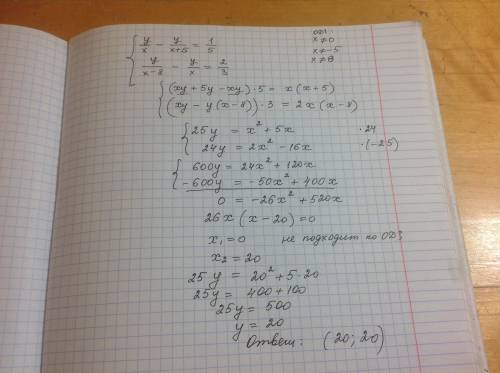 y/x - y/(x+5) = 1/5
y/(x-8) - y/x = 2/3
ОДЗ:
x ≠ 0
x ≠ -5
x ≠ 8
(xy + 5y - xy) · 5 = x(x+5)
(xy - y(x-8)) · 3 = 2x(x-8)
25y = x² + 5x · 24
24y = 2x² - 16x · (-25)
600y = 24x² + 120x
-600y = -50x² + 400x
0 = -26x² + 520x
26x(x-20) = 0
x₁ = 0 не подходит по ОДЗ
x₂ = 20
25y = 20² + 5·20
25y = 400 + 100
25y = 500
y = 20
Ответ: (20; 20)